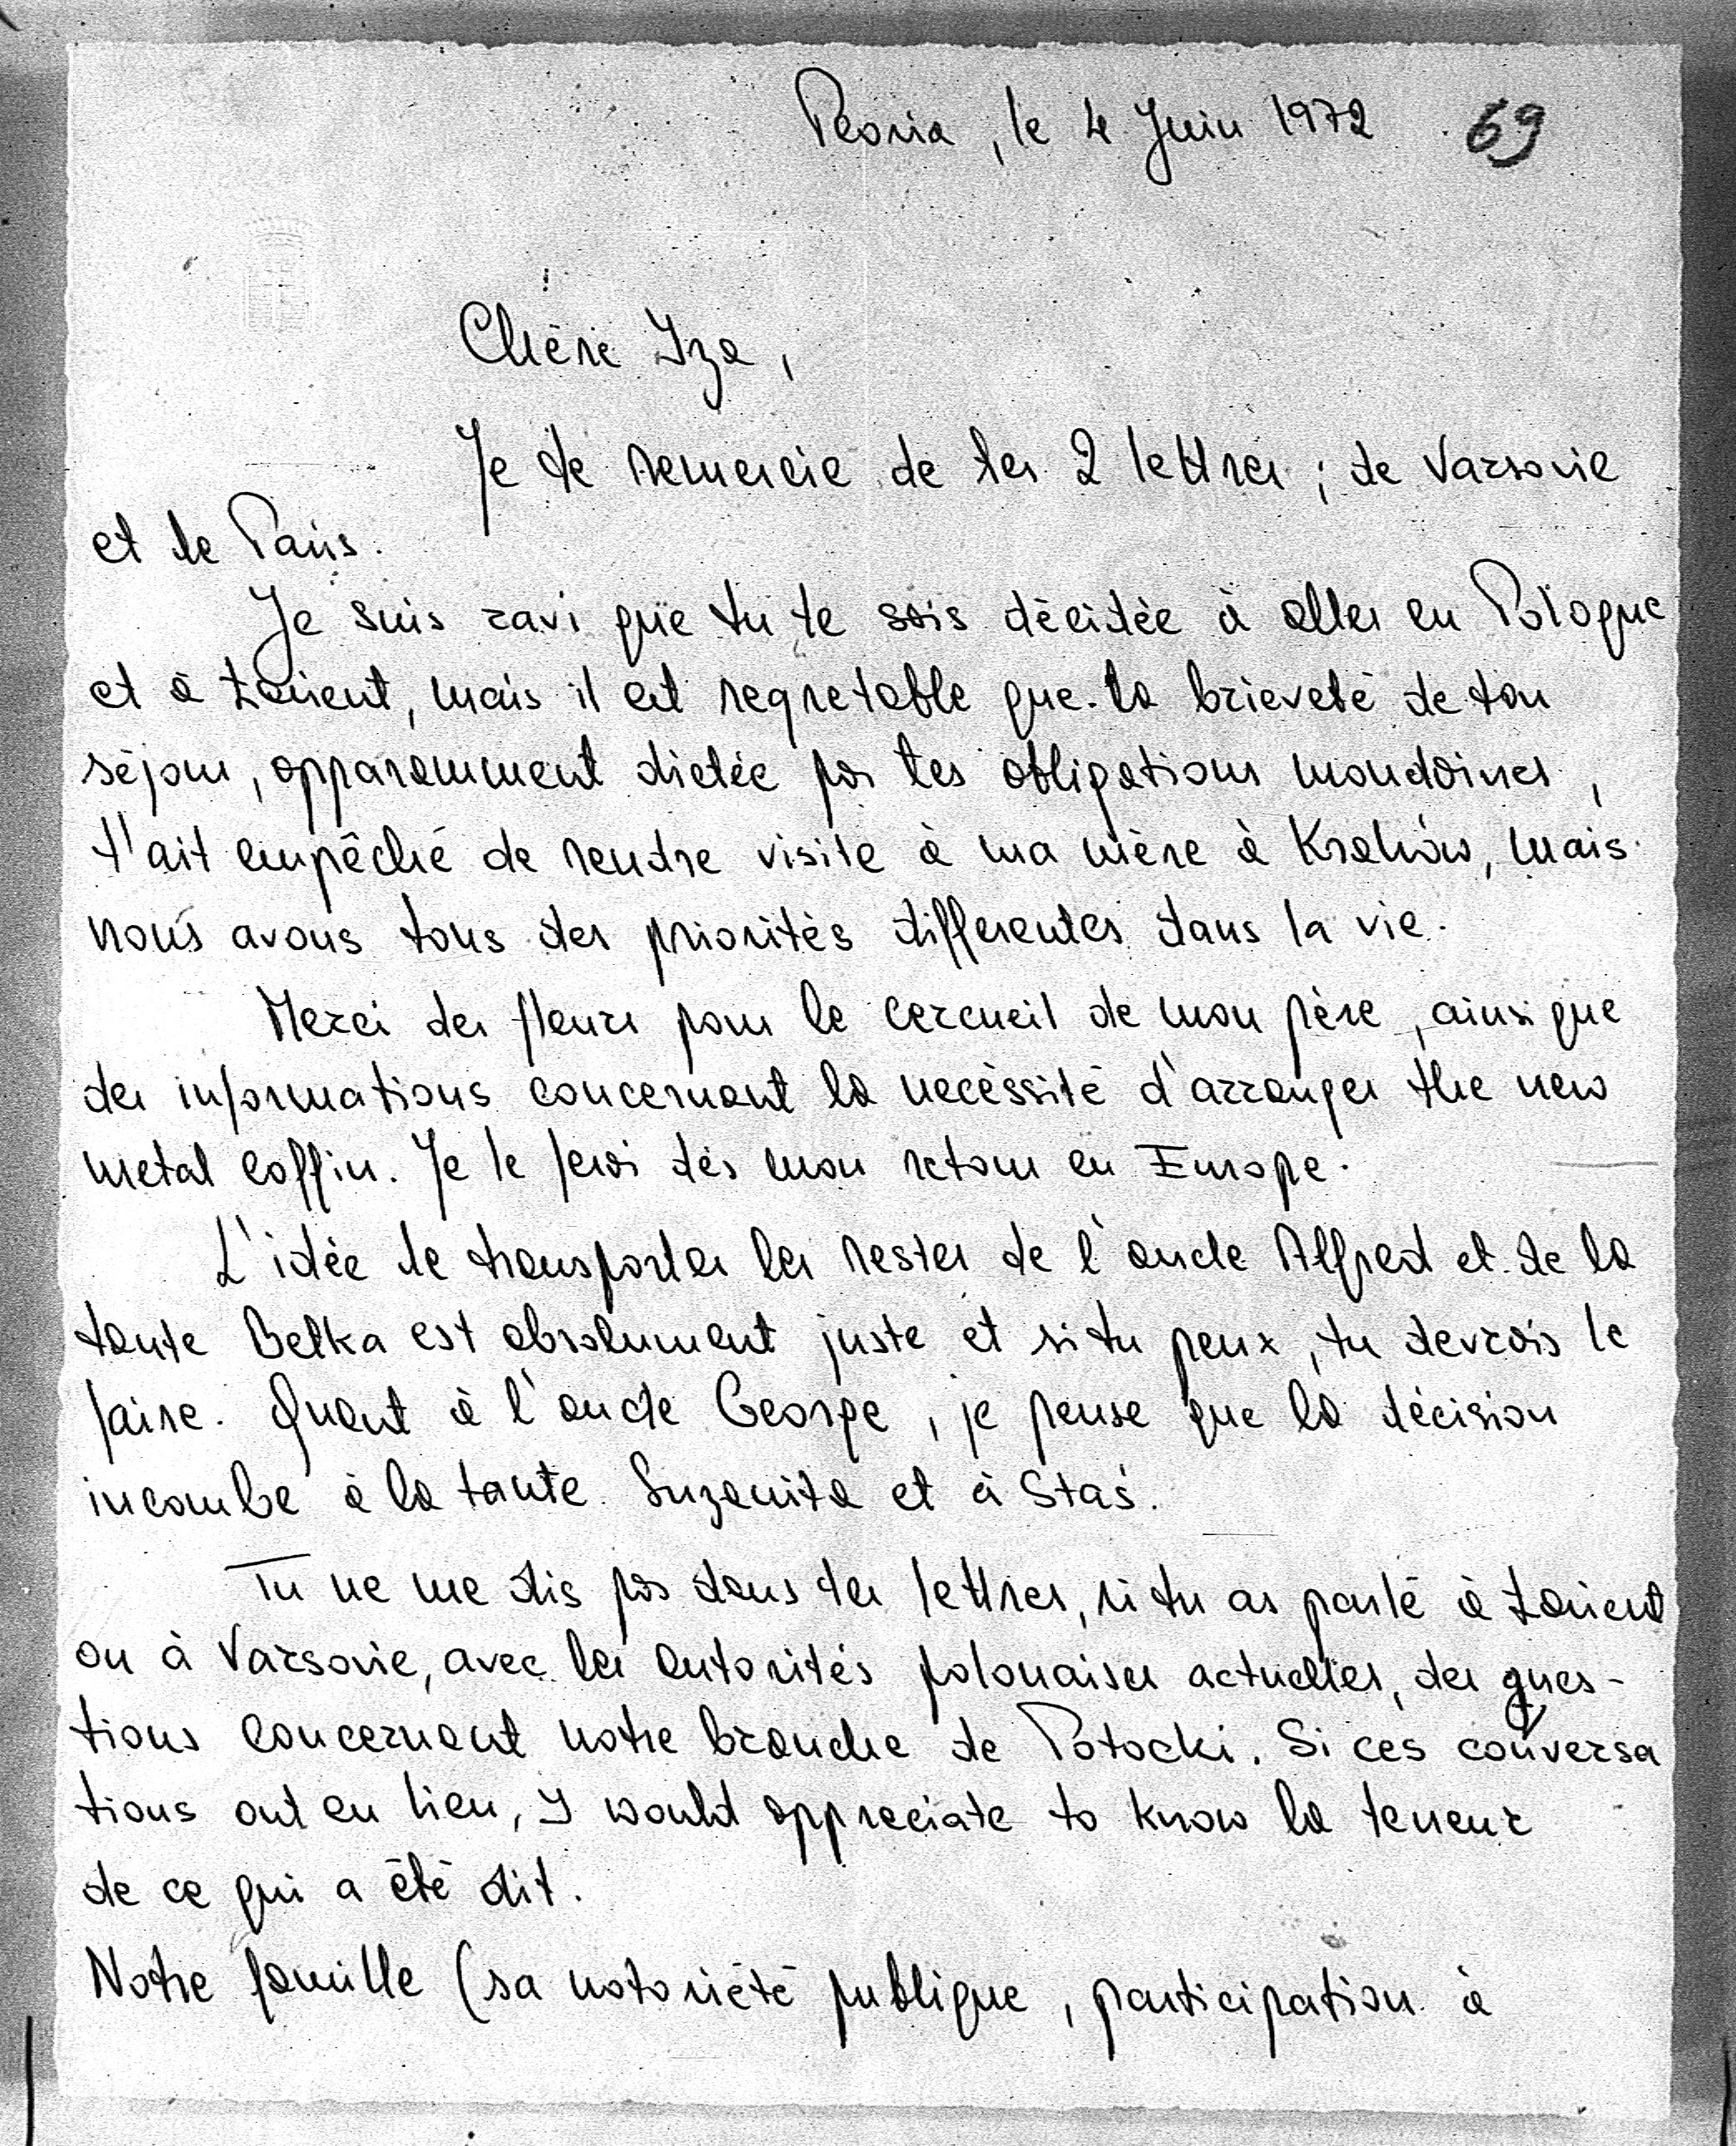 Peoria, le 4 Juin 1972 69
Chère Iza,
Je te remercie de tes 2 lettres; de Varsovie
et de Paris.
Je suis ravi que tu te sois décidée à aller en Pologne
et à Łańcut, mais il est regretable que la brieveté de ton
séjour, apparemment dictée par tes obligations mondaines,
t'ait empêché de rendre visite à ma mère à Kraków, mais
nous avons tous des priorités differentes dans la vie.
Merci des fleurs pour le cercueil de mon père, ainsi que
des informations concernant la necèssité d'arranger the new
metal coffin. Je le ferai dès mon retour en Europe.
L'idée de transporter les restes de l'oncle Alfred et de la
tante Betka est absolument juste et si tu peux, tu devrais le
faire. Quant à l'oncle George, je pense que la décision
incombe à la tante Suzanita et à Staś.
Tu ne me dis pas dans tes lettres, si tu as parlé à Łańcut
ou à Varsovie, avec les autorités polonaises actuelles, des ques-
tions concernant notre branche de Potocki. Si ces conversa
tions ont eu lieu, I would appreciate to know la teneur
de ce qui a été dit.
Notre famille (sa notoriété publique, participation à